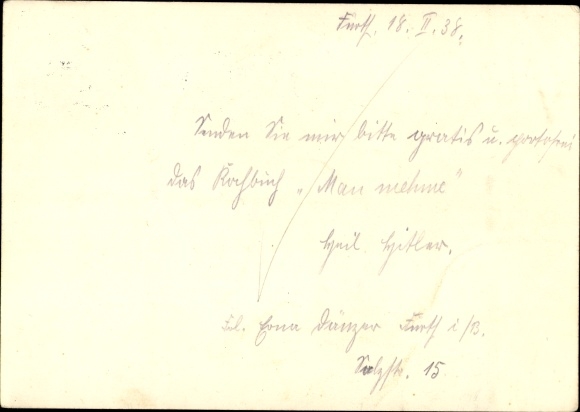 Furth, 18. II. 38.
Senden Sie mir bitte gratis u. portofrei
das Kochbuch „Man nehme"
Heil Hitler.
Frl. Erna Dänzer Furth i/B.
Salzstr. 15